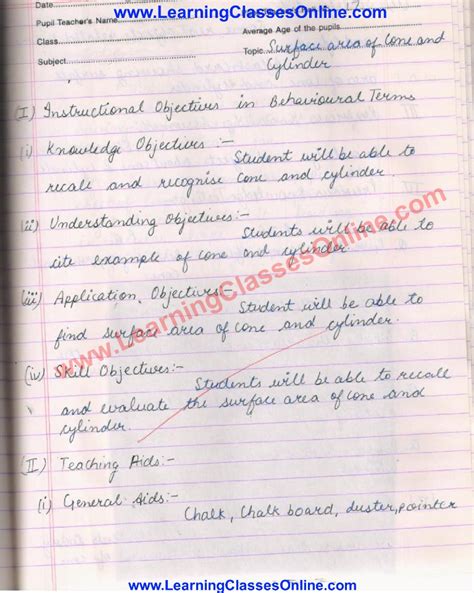 www.LearningClassesOnline.com
Date
Pupil Teacher's Name
Average Age of the pupils
Class
Topic Surface area of cone and
Subject
cylinder
(I) Instructional Objectives in Behavioural Terms
(i) Knowledge Objectives :-
Student will be able to
recall and recognise cone and cylinder.
(ii) Understanding Objectives:-
Students will be able to
cite example of cone and cylinder.
(iii) Application Objectives-
Student will be able to
find surface area of cone and cylinder.
(iv) Skill Objectives:-
Students will be able to recall
and evaluate the surface area of cone and
cylinder.
(II) Teaching Aids:-
(i) General Aids:-
Chalk, Chalk board, duster, pointer
www.LearningClassesOnline.com
www.LearningClassesOnline.com